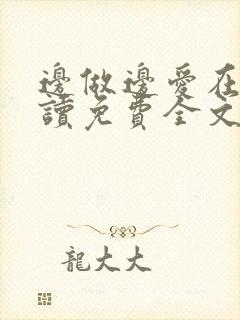 邊做邊愛在
讀免費全文
龍大大